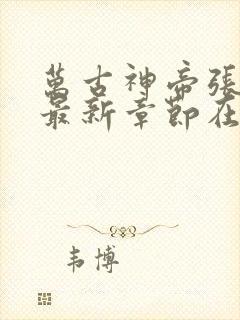 萬古神帝張
最新章節在
韦博